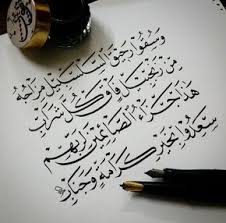 وَسُقُوا رَحِيقَ السَّلْسَبِيلِ مِزَاجُهُ
مِنْ زَنْجَبِيلٍ فَاقَ كُلَّ شَرَابِ
هَذَا جَزَاءُ الصَّائِمِينَ لِرَبِّهِمْ
سَعِدُوا بِخَيْرِ كَرَامَةٍ وَجَنَابِ